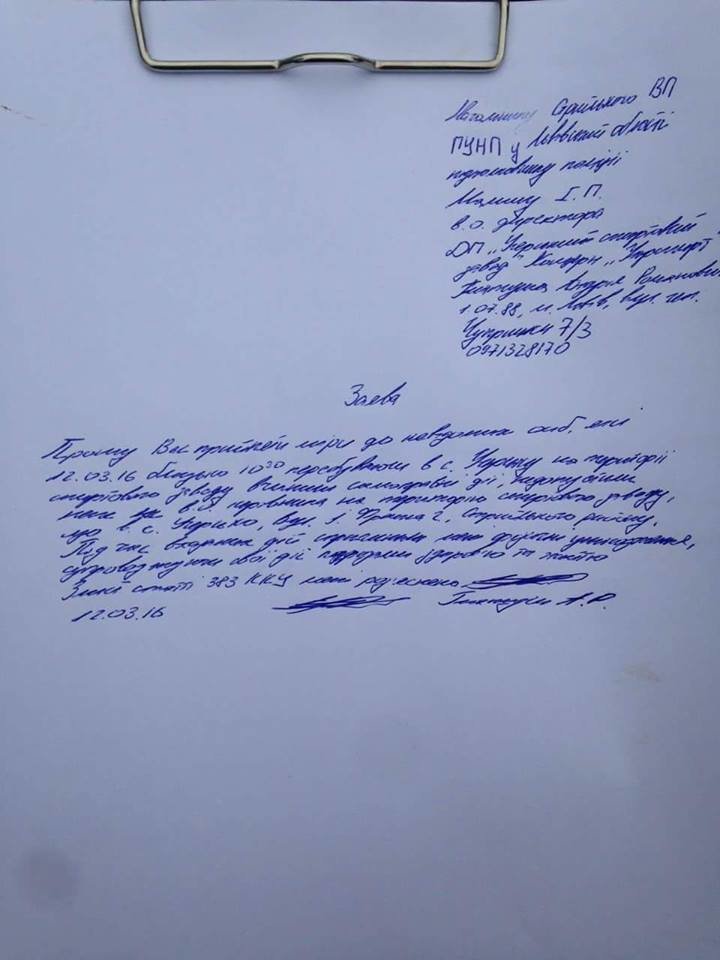 Начальнику Стрийського ВП
ГУНП у Львівській області
підполковнику поліції
І. П.
в.о. директора
ДП „Угерський спиртовий
завод" Концерн „Укрспирт"
Андрія Романовича
1.07.88, м. Львів, вул. ген.
Чупринки 7/3
0971328170
Заява
Прошу Вас прийняти міри до невідомих осіб, які
12.03.16 близько 10³⁰ перебуваючи в с. Угерсько на території
спиртового заводу вчинили самоправні дії, недопустили
мене як в.о. керівника на територію спиртового заводу,
що в с. Угерсько, вул. І. Франка 2, Стрийського району,
Під час вказаних дій спричинили мені фізичні ушкодження,
супроводжуючи свої дії здоров'ю та життю
Зміст статті 383 ККУ мені роз'яснено
12.03.16 А. Р.